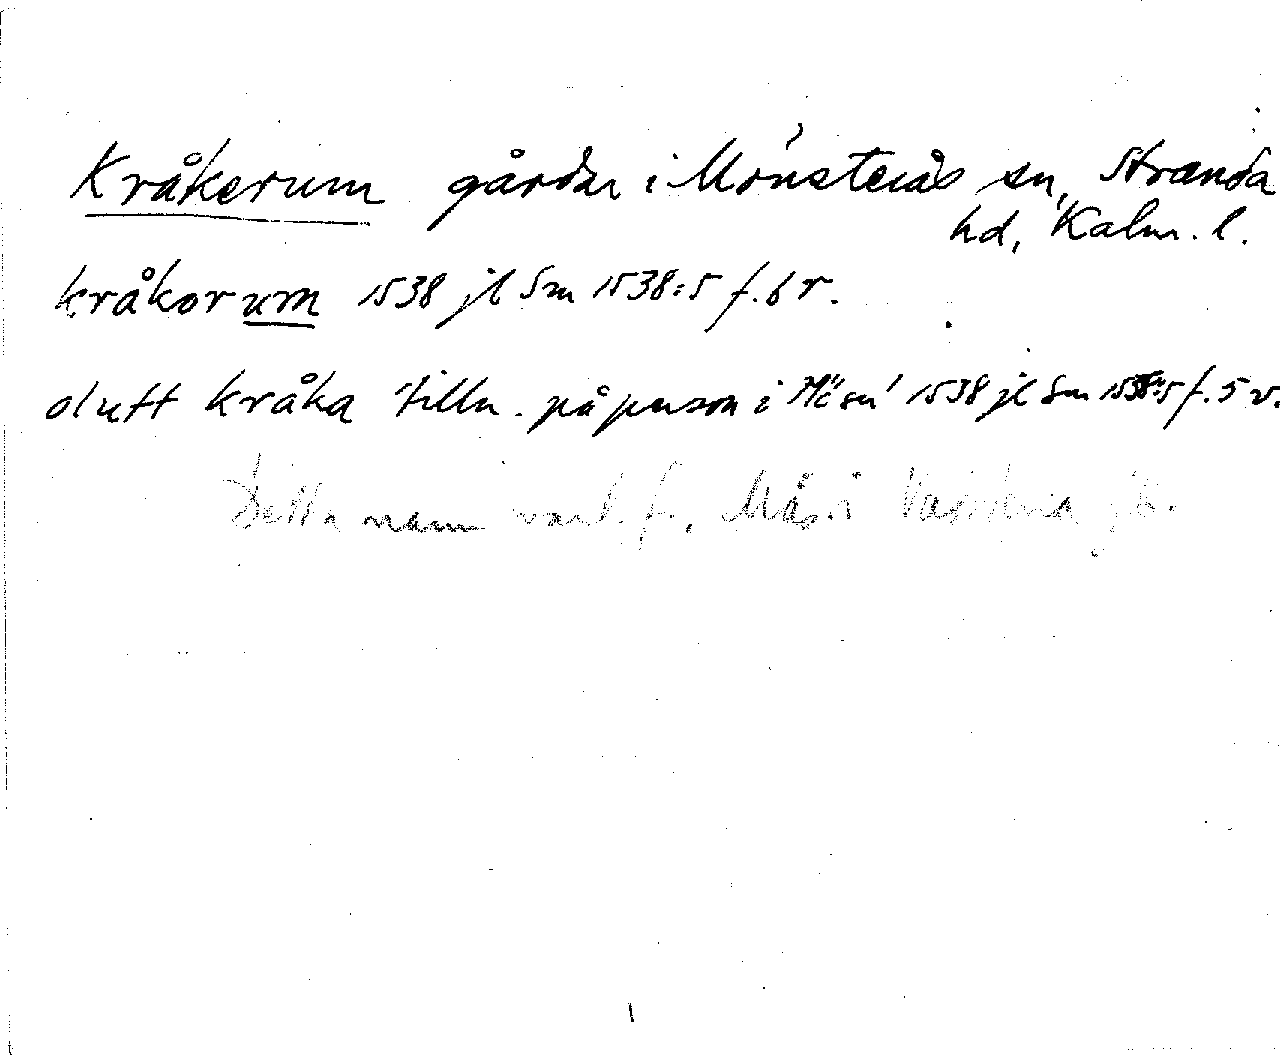 Kråkerum gårdar i Mönsterås sn, Stranda
hd, Kalm. l.
kråkorum 1538 jb Sm 1538:5 f. 6 r.
oluff kråka tilln. på person i Mö sn 1538 jb Sm 1538:5 f. 5 v.
Detta namn vanl. f. i Vadstena jb.